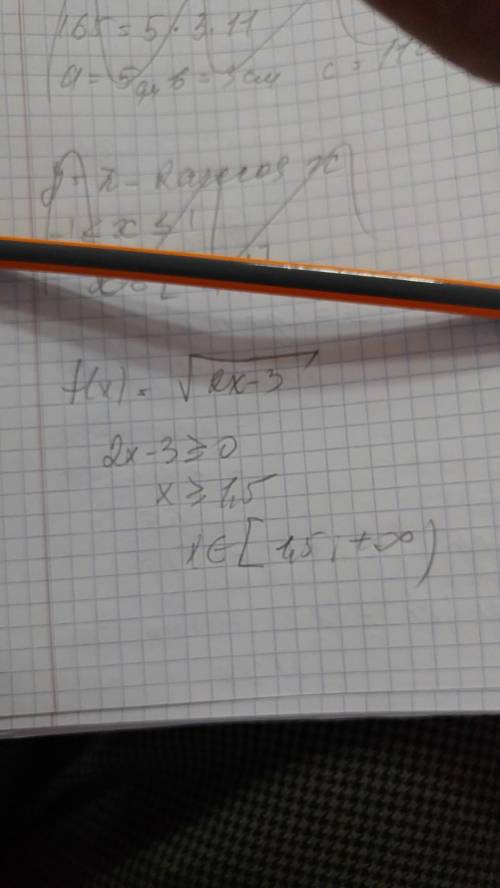 165 = 5 · 3 · 11
a = 5 см в = 3 см с = 11
-1 < x ≤ 1
f(x) = √2x-3
2x-3 ≥ 0
x ≥ 1,5
x ∈ [1,5; +∞)